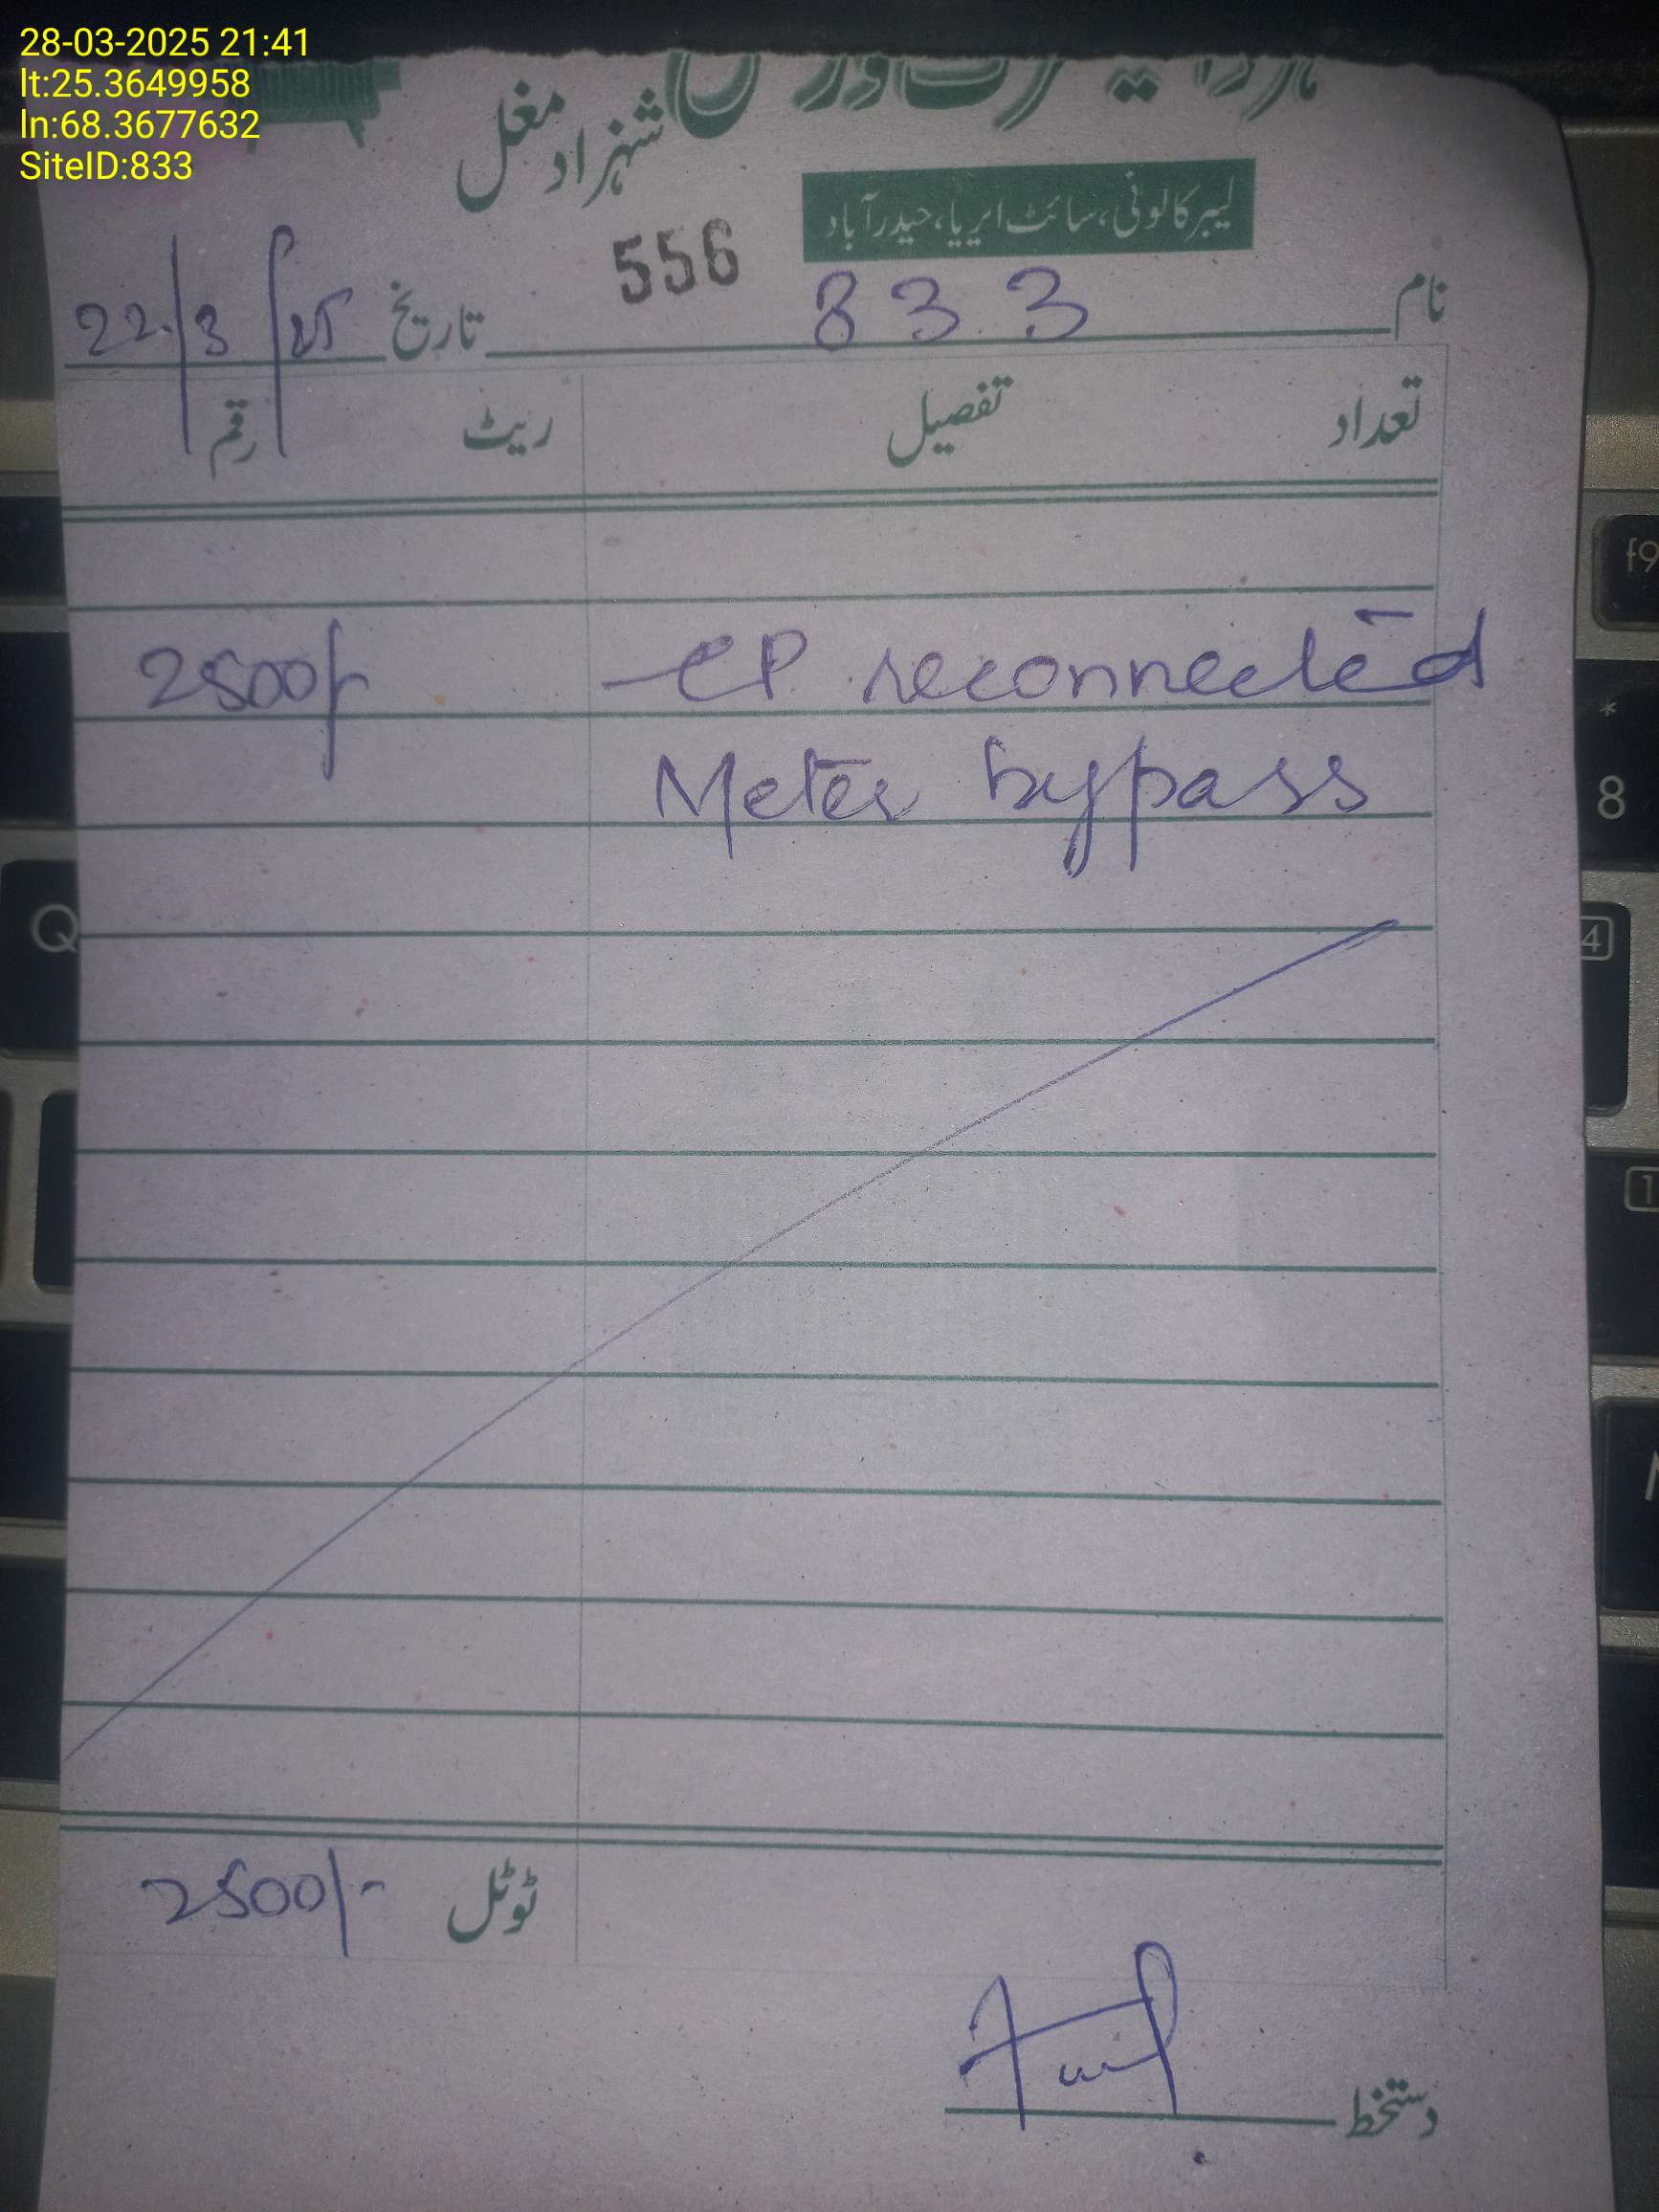 28-03-2025 21:41
lt:25.3649958
ln:68.3677632
SiteID:833
شہزاد مغل
لیبر کالونی، سائٹ ایریا، حیدرآباد
556
نام 833 تاریخ 22/3/25
تعداد تفصیل ریٹ رقم
CP reconnected 2500/-
Meter bypass
ٹوٹل 2500/-
دستخط
f9
*
8
Q
4
1